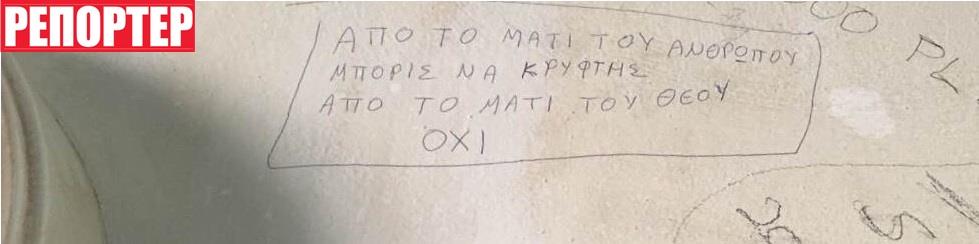 ΡΕΠΟΡΤΕΡ
ΑΠΟ ΤΟ ΜΑΤΙ ΤΟΥ ΑΝΘΡΩΠΟΥ
ΜΠΟΡΙΣ ΝΑ ΚΡΥΦΤΗΣ
ΑΠΟ ΤΟ ΜΑΤΙ ΤΟΥ ΘΕΟΥ
ΟΧΙ
PL